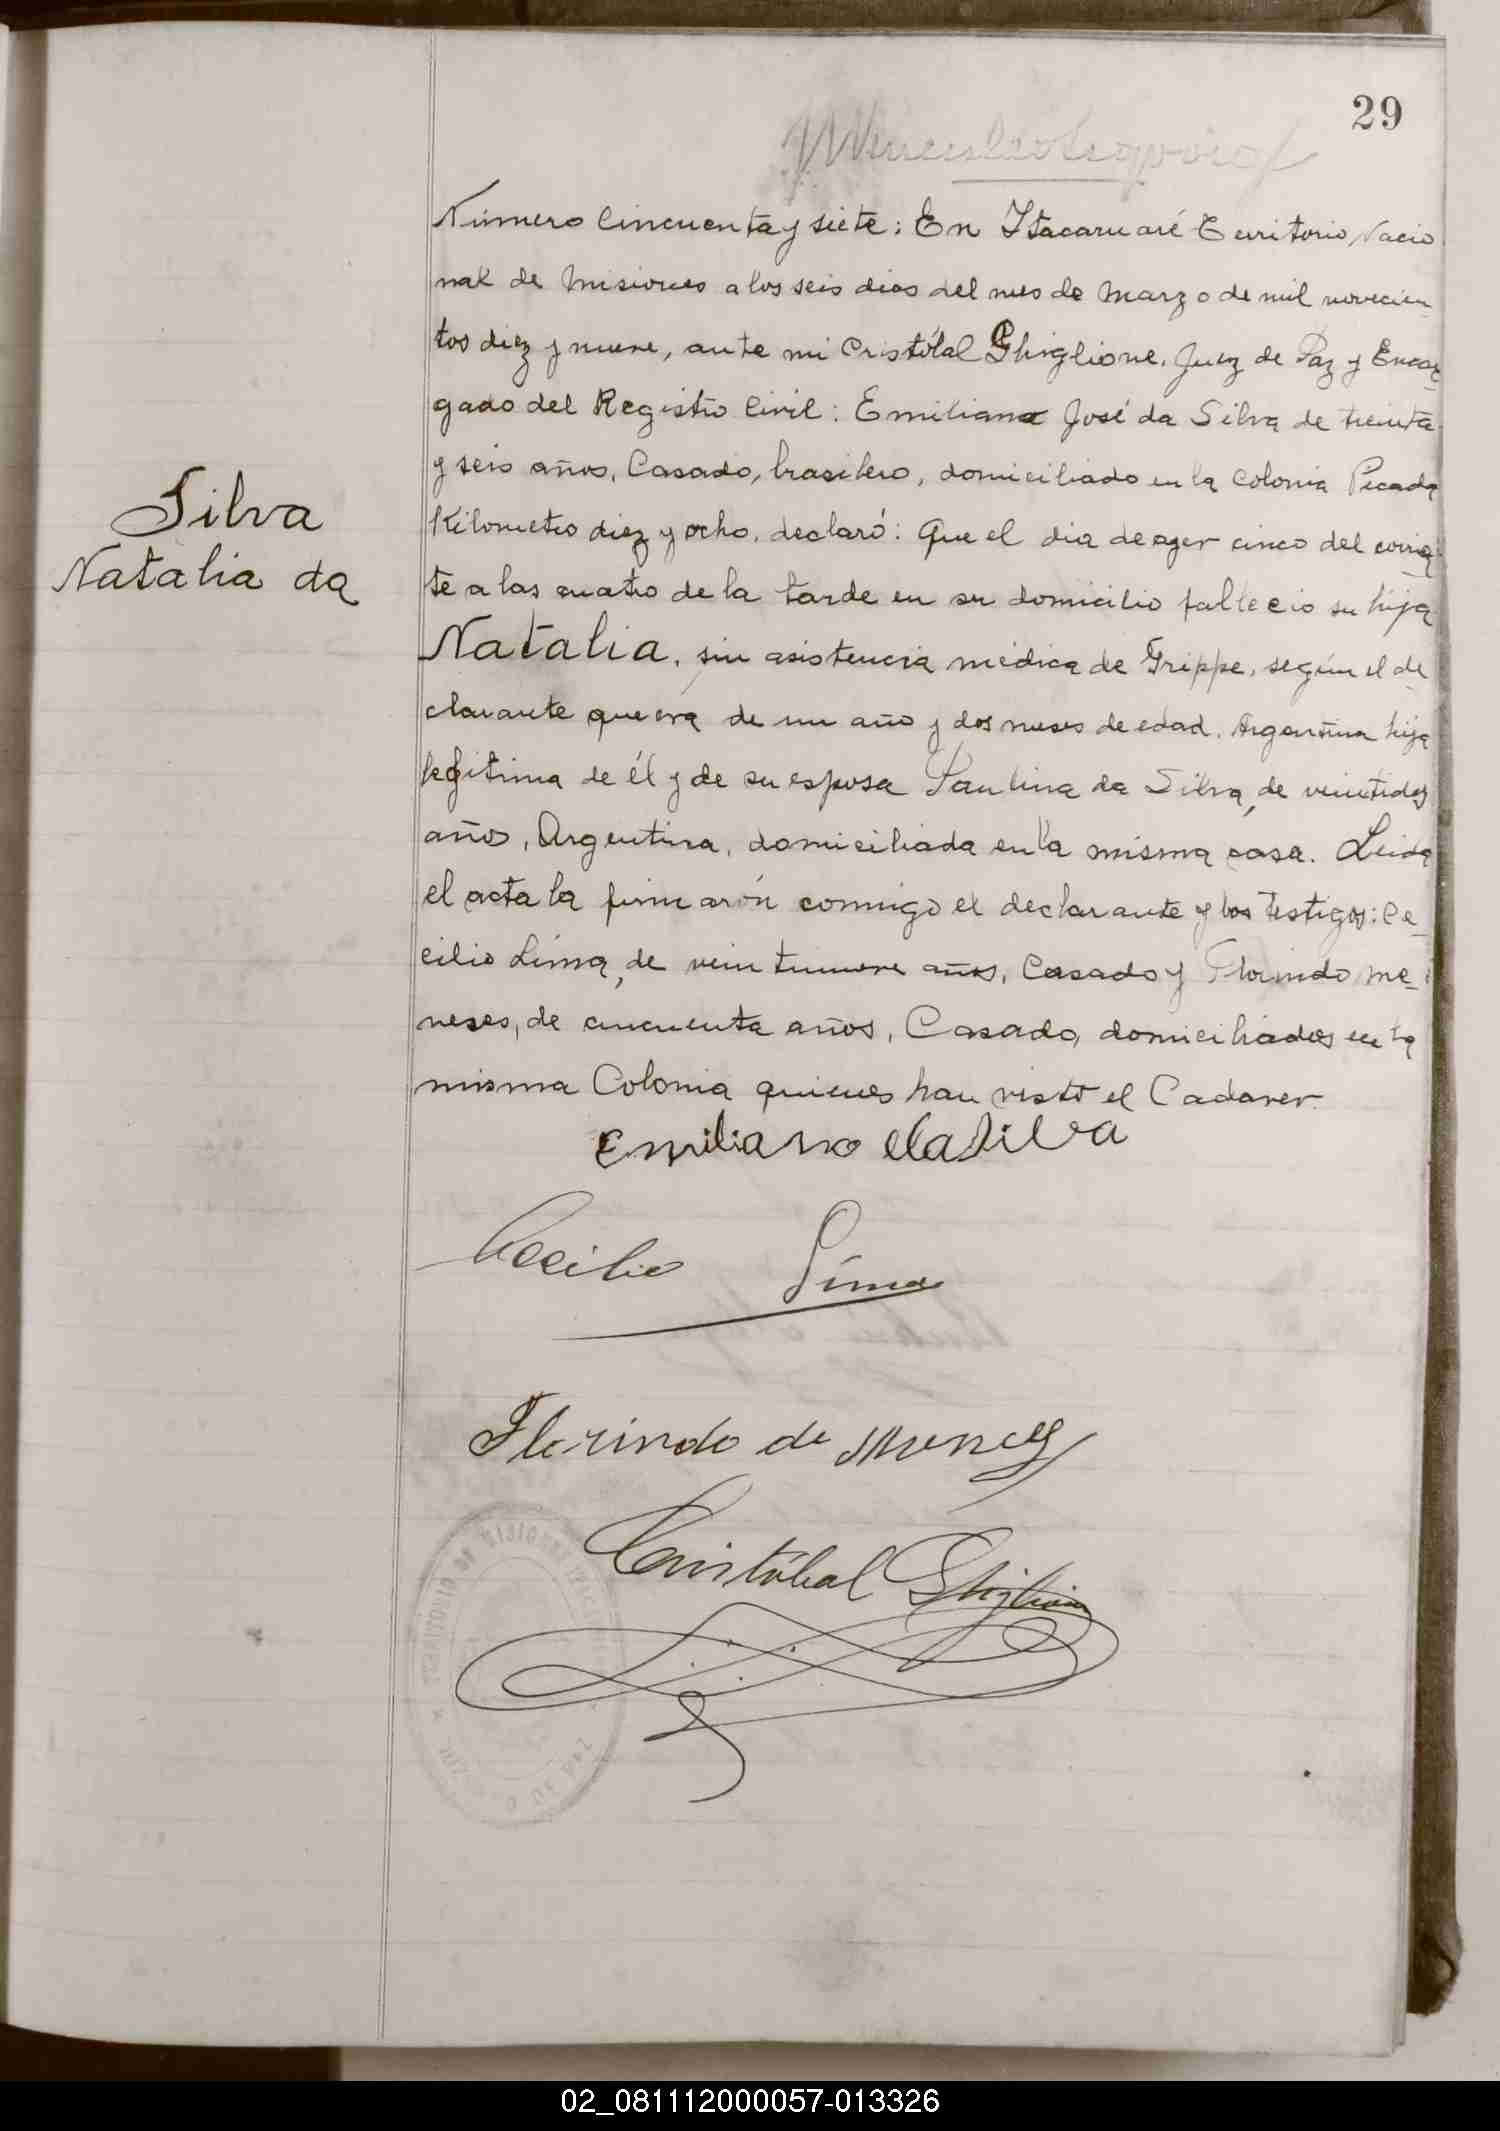 29
Número Cincuenta y siete: En Itacaruaré Territorio Nacio
nal de Misiones a los seis dias del mes de Marzo de mil novecien
tos diez y nueve, ante mi Cristóbal Ghiglione, Juez de Paz y Encar
gado del Registro Civil: Emiliano José da Silva de treinta
y seis años, Casado, brasilero, domiciliado en la Colonia Picada
Kilometro diez y ocho, declaró: Que el dia de ayer cinco del corrien
te a las cuatro de la tarde en su domicilio fallecio su hija
Natalia, sin asistencia médica de Grippe, según el de
clarante que era de un año y dos meses de edad. Argentina hija
legitima de él y de su esposa Paulina da Silva, de veintidos
años, Argentina, domiciliada en la misma casa. Leida
el acta la firmarón conmigo el declarante y los testigos: Ce_
cilio Lima, de veintinueve años, Casado y Florindo Me_
neses, de cincuenta años, Casado, domiciliados en la
misma Colonia quienes han visto el Cadaver.
Silva
Natalia da
Emiliano da Silva
Cecilio Lima
Florindo de Meneses
Cristóbal Ghiglione
02_081112000057-013326